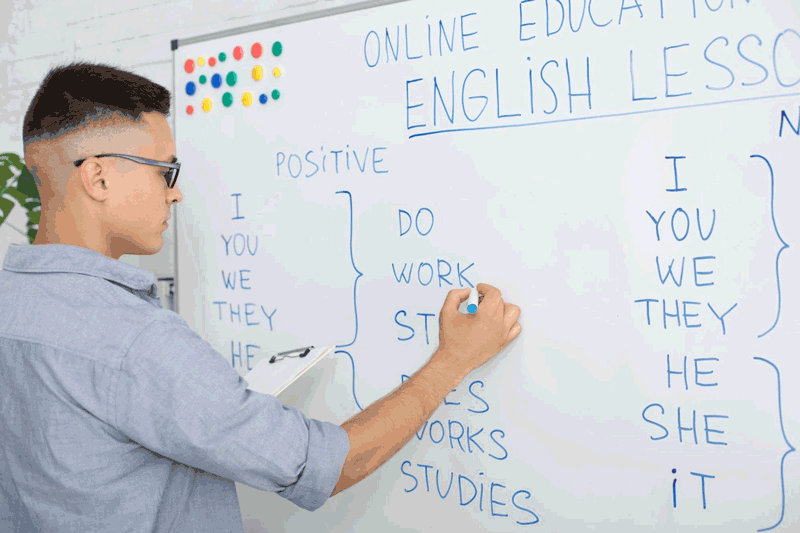 ONLINE EDUCATION
ENGLISH LESSO
POSITIVE
I
YOU
WE
THEY
HE
DO
WORK
ST
DOES
WORKS
STUDIES
N
I
YOU
WE
THEY
HE
SHE
IT